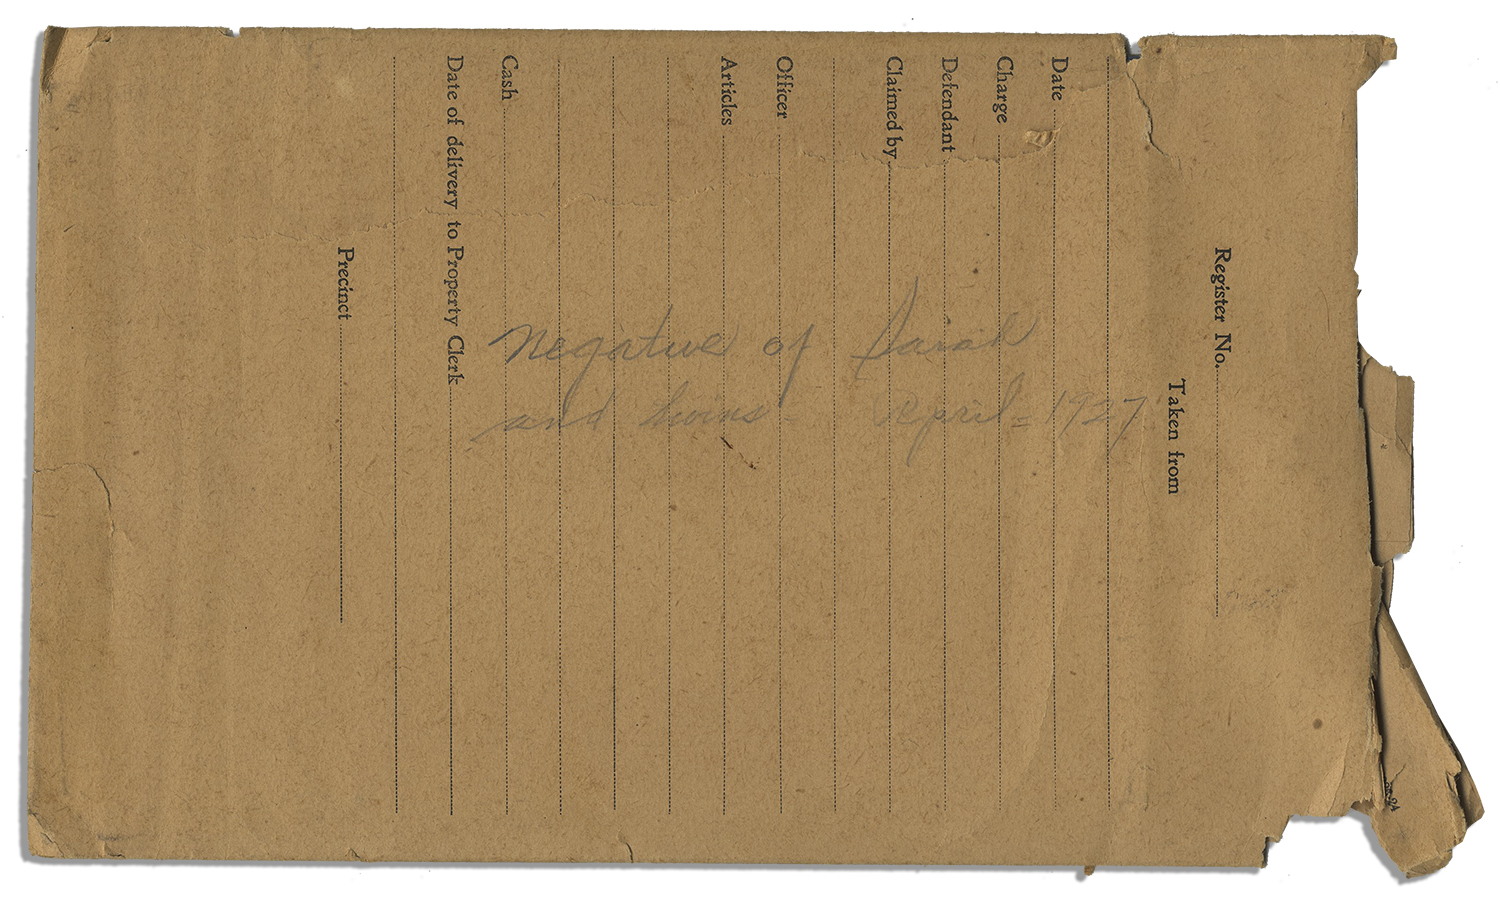 Register No.
Taken from
Date
Charge
Defendant
Claimed by
Officer
Articles
Cash
Date of delivery to Property Clerk
Precinct
Negative of Sarah
and twins - April - 1927